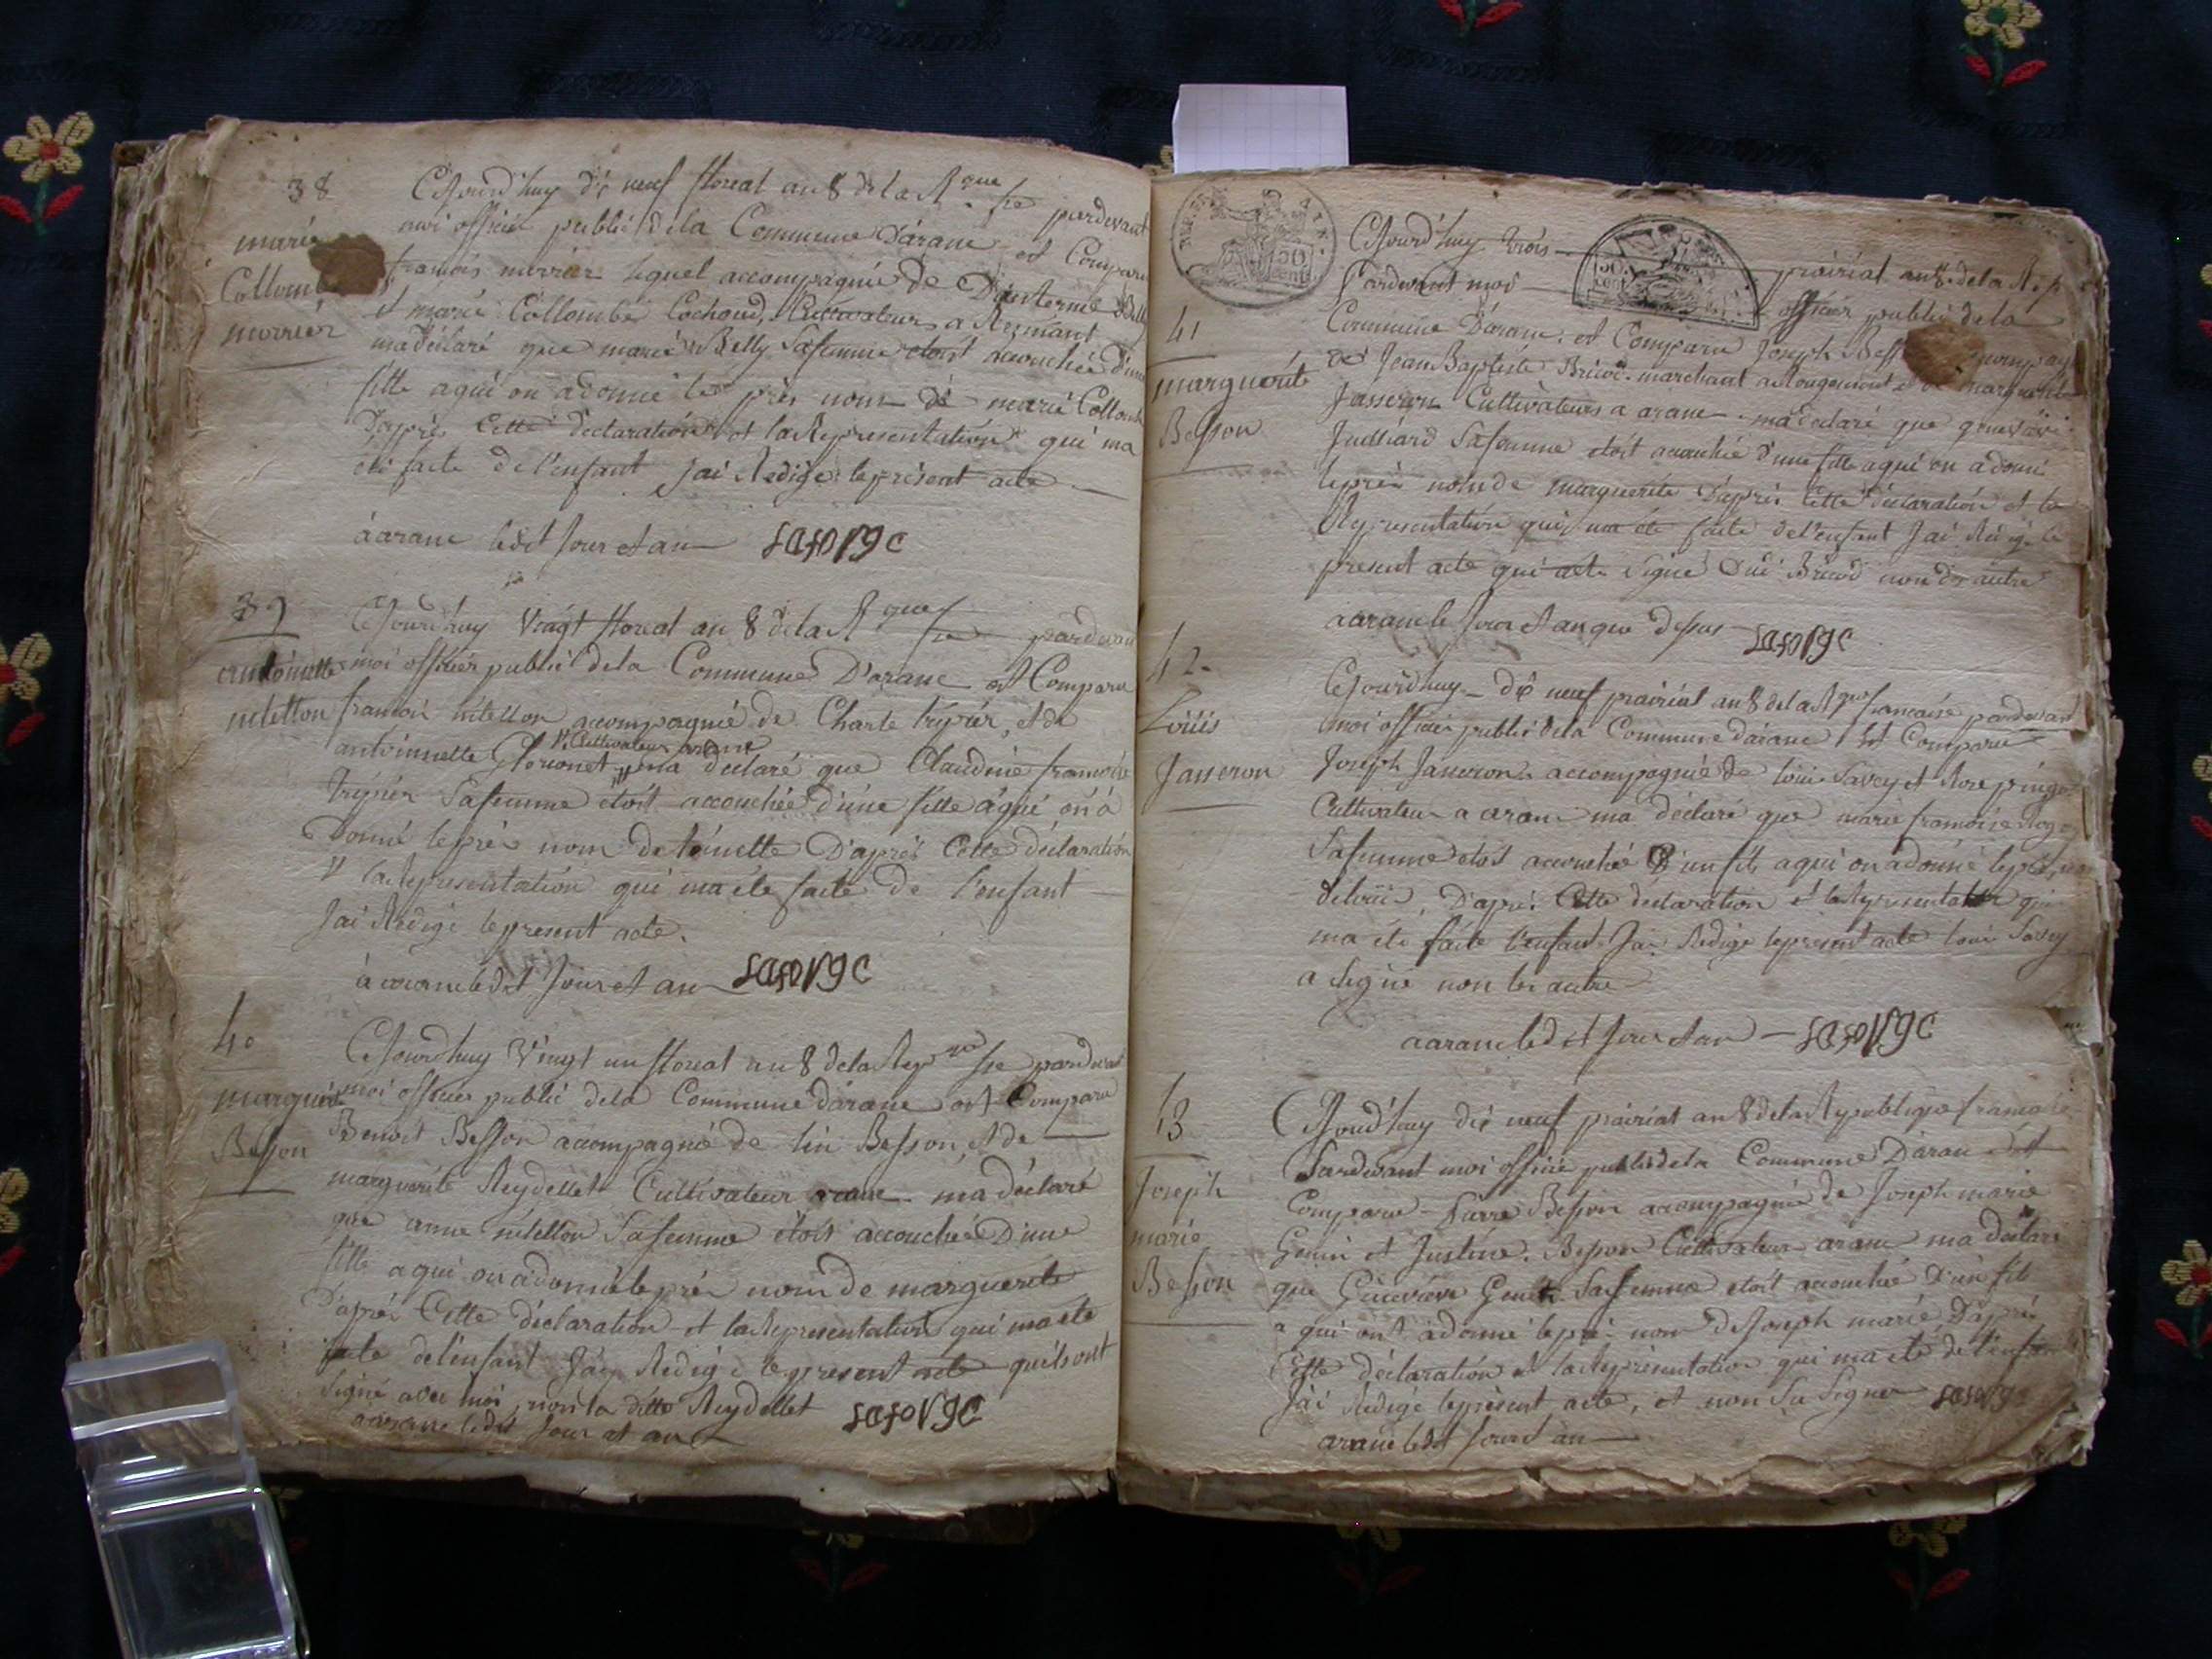 38
marie
Collombe
morrier
Cejourd'huy dix neuf floreal an 8 de la R.que fse pardevant
moi officier public de la Commune D'arane est Comparu
francois morrier lequel accompagnié de Belly
et marie Collombe Cochoud, Cultivateurs a Rumant
ma déclaré que marie Belly Safemme etoit accouchée d'une
fille a qui on a donné le pré nom de marie Collombe
D'après Cette déclaration et la Representation qui ma
été faite de l'enfant jai Redigé le présent acte
à arane ledit Jour et an
39
antoinette
niletton
Cejourd'huy vingt floreal an 8 de la R que fse pardevant
moi officier public de la Commune D'arane est Comparu
francois niletton accompagnié de Charle tripier, et de
antoinnette Glorionet ma déclaré que Claudine francoise
Cultivateur arane
tripier Safemme étoit accouchée d'une fille a qui on a
Donné le pré nom de toinette D'après Cette déclaration
et la Representation qui ma été faite de l'enfant
Jai Redigé le present acte.
à arane ledit Jour et an
40
marguerite
Besson
Cejourd'huy Vingt un floreal an 8 de la Rep que fse pardevant
moi officier public de la Commune d'arane est Comparu
Benoit Besson accompagnié de lin Besson, et de
marguerite Reydellet Cultivateur arane ma déclaré
que anne niletton Safemme étoit accouchée D'une
fille a qui on a donné le pré nom de marguerite
D'après Cette déclaration et la Representation qui ma été
faite de l'enfant J'ay Redigé le present acte qu'ils ont
Signé avec moi, non la ditte Reydellet
a arane ledit Jour et an
50
cent
Cejourd'huy trois prairial an 8. de la Rep
Pardevant moi officier public de la
41
marguerite
Besson
Commune D'arane. est Comparu Joseph Bess
de Jean Baptiste Bricod. marchant a Rougemont et de marguerite
Jasseron Cultivateurs a arane ma déclaré que genevieve
Juilliard Safemme étoit accouchée d'une fille a qui on a donné
le pré nom de marguerite D'après Cette déclaration et la
Representation qui ma été faite de l'enfant Jai Redigé le
present acte qui Signé Bricod non autre
a arane le Jour et an que dessus
42
Loüis
Jasseron
Cejourd'huy dix neuf prairial an 8 de la R que francaise pardevant
moi officier public de la Commune d'arane Est Comparu
Joseph Jasseron accompagnié de louis Savey et Rose pingo
Cultivateur a arane ma déclaré que marie francoise
Safemme étoit accouchée D'un fils a qui on a donné le pré nom
de louis, D'après Cette déclaration et la Representation qui
ma été faite l'enfant Jai Redigé le present acte louis Savey
a Signé non les autre
a arane ledit Jour et an
43
Joseph
marie
Besson
Cejourd'huy dix neuf prairial an 8 de la Republique francaise
Pardevant moi officier public de la Commune D'arane est
Comparu Pierre Besson accompagnié de Joseph marie
Genin et Justine Besson Cultivateur arane ma déclaré
que Genevieve Safemme étoit accouchée D'un fils
a qui ont a donné le pré nom de Joseph marie D'après
Cette déclaration et la Representation qui ma été de l'enfant
J'ai Redigé le présent acte, et non Su Signer
arane ledit Jour et an